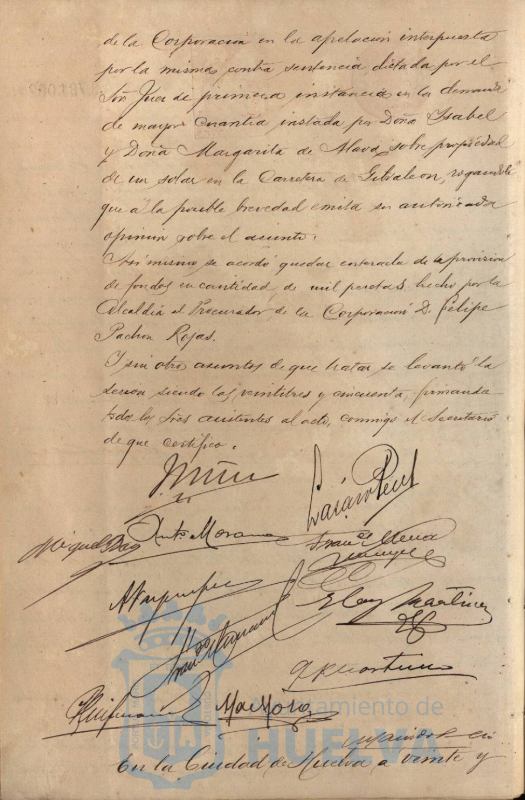 de la Corporacion en la apelacion interpuesta
por la misma contra sentencia dictada por el
Sor Juez de primera instancia en la demanda
de mayor cuantia instada por Doña Isabel
y Doña Margarita de Mora, sobre propiedad
de un solar en la Carretera de Gibraleon, rogandole
que a la posible brevedad emita su autorizada
opinion sobre el asunto.
Asi mismo se acordó quedar enterada de la provision
de fondos en cantidad de mil pesetas hecho por la
Alcaldia al Procurador de la Corporacion D. Felipe
Pachon Rojas.
Y sin otros asuntos de que tratar se levantó la
sesion siendo las veintitres y cincuenta, firmando
los Sres asistentes al acto, conmigo el Secretario
de que certifico.
Antº Mora
Eloy Martinez
Ayuntamiento de
HUELVA
En la Ciudad de Huelva a veinte y